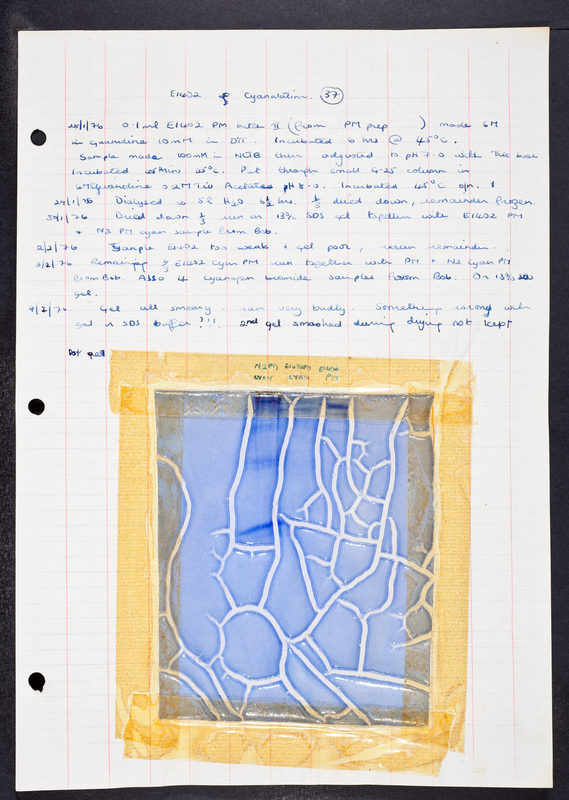 E1402 Cyanalation. 37
28/1/76 0.1ml E1402 PM batch II (from PM prep ) made 6M
in Guanidine 10mM in DTT. Incubated 6 hrs @ 45°C.
Sample made 100mM in NCTB then adjusted to pH 7.0 with Tris base
Incubated 45 mins 45°C. Put through small G-25 column in
6M Guanidine 0.2M Tris Acetate pH 8.0. Incubated 45°C o/n.
29/1/76 Dialysed vs 5l H2O 6½ hrs. ⅓ dried down, remainder frozen.
30/1/76 Dried down ⅓ run on 13% SDS gel together with E1402 PM
+ N2 PM cyan sample from Bob.
2/2/76 Sample E1402 too weak + gel poor, rerun remainder.
3/2/76 Remaining ⅔ E1402 Cyan PM run together with PM + N2 Cyan PM
from Bob. Also 4 cyanogen bromide samples from Bob. On 13% SDS
gel.
4/2/76. Gel all smeary - ran very badly. Something wrong with
gel or SDS buffer ?!!! 2nd gel smashed during drying not kept
1st gel
N2PM E1402PM E1402
CYAN CYAN PM